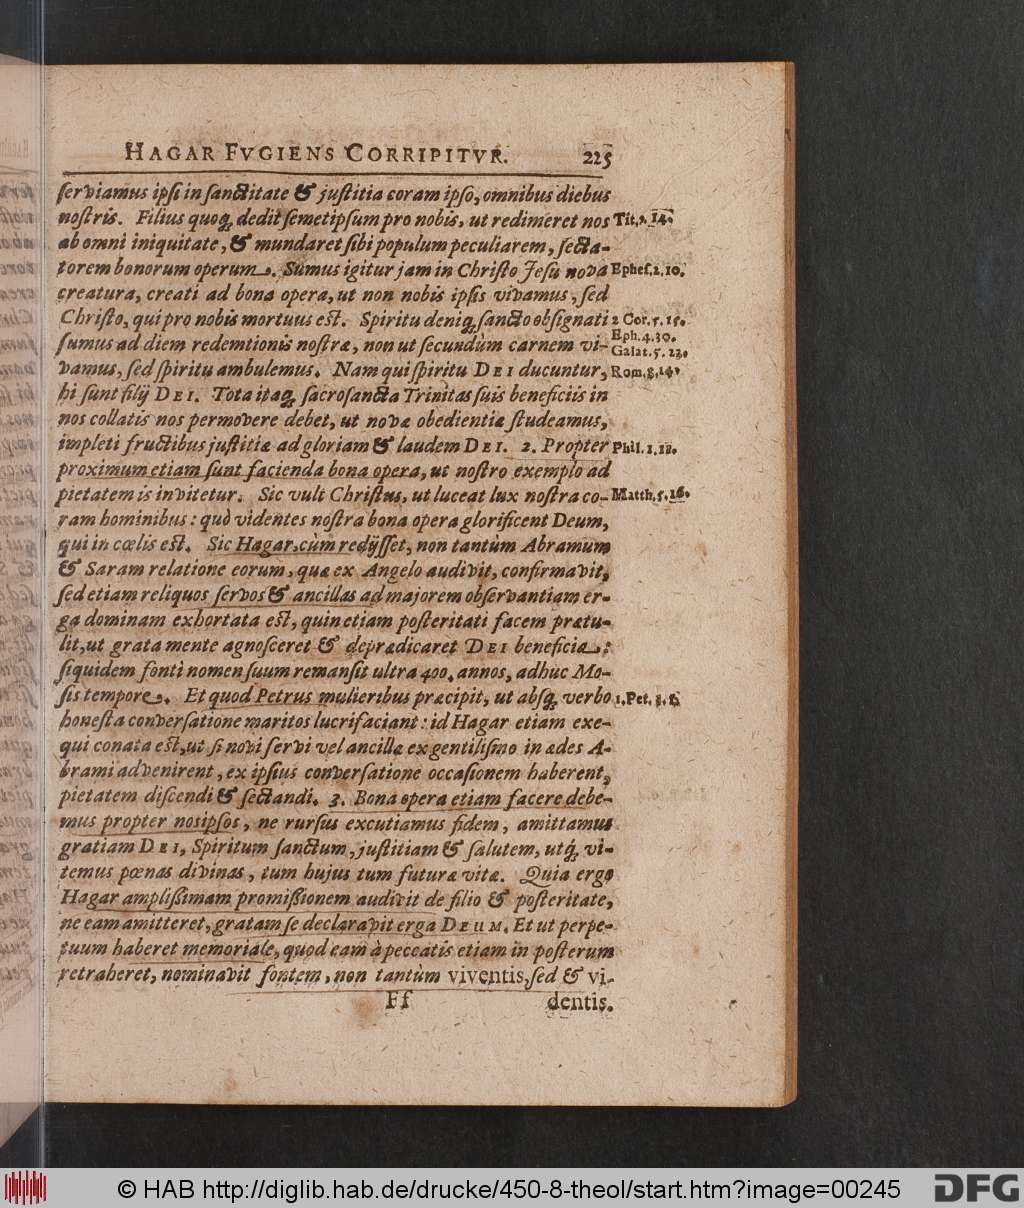 HAGAR FVGIENS CORRIPITVR. 225
ſerviamus ipſi in ſanctitate & juſtitia coram ipſo, omnibus diebus
noſtris. Filius quoq; dedit ſemetipſum pro nobis, ut redimeret nos Tit. 2. 14.
ab omni iniquitate, & mundaret ſibi populum peculiarem, ſecta-
torem bonorum operum. Sumus igitur jam in Chriſto Jeſu nova Epheſ. 2. 10.
creatura, creati ad bona opera, ut non nobis ipſis vivamus, ſed
Chriſto, qui pro nobis mortuus eſt. Spiritu deniq; ſancto obſignati 2 Cor. 5. 15.
Eph. 4. 30.
ſumus ad diem redemtionis noſtræ, non ut ſecundùm carnem vi- Galat. 5. 23.
vamus, ſed ſpiritu ambulemus. Nam qui ſpiritu DEI ducuntur, Rom. 8. 14.
hi ſunt filij DEI. Tota itaq; ſacroſancta Trinitas ſuis beneficiis in
nos collatis nos permovere debet, ut novæ obedientiæ ſtudeamus,
impleti fructibus juſtitiæ ad gloriam & laudem DEI. 2. Propter Phil. 1. 11.
proximum etiam ſunt facienda bona opera, ut noſtro exemplo ad
pietatem is invitetur. Sic vult Chriſtus, ut luceat lux noſtra co- Matth. 5. 16.
ram hominibus: quò videntes noſtra bona opera glorificent Deum,
qui in cœlis eſt. Sic Hagar, cùm redijſſet, non tantùm Abramum
& Saram relatione eorum, quæ ex Angelo audivit, confirmavit,
ſed etiam reliquos ſervos & ancillas ad majorem obſervantiam er-
ga dominam exhortata eſt, quin etiam poſteritati facem prætu-
lit, ut grata mente agnoſceret & deprædicaret DEI beneficia:
ſiquidem fonti nomen ſuum remanſit ultra 400. annos, adhuc Mo-
ſis tempore. Et quod Petrus mulieribus præcipit, ut abſq; verbo 1. Pet. 3. 1.
honeſta converſatione maritos lucrifaciant: id Hagar etiam exe-
qui conata eſt, ut ſi novi ſervi vel ancillæ ex gentiliſmo in ædes A-
brami advenirent, ex ipſius converſatione occaſionem haberent,
pietatem diſcendi & ſectandi. 3. Bona opera etiam facere debe-
mus propter nosipſos, ne rurſus excutiamus fidem, amittamus
gratiam DEI, Spiritum ſanctum, juſtitiam & ſalutem, utq; vi-
temus pœnas divinas, tum hujus tum futuræ vitæ. Quia ergo
Hagar ampliſſimam promiſſionem audivit de filio & poſteritate,
ne eam amitteret, gratam ſe declaravit erga DEUM. Et ut perpe-
tuum haberet memoriale, quod eam à peccatis etiam in poſterum
retraheret, nominavit fontem, non tantùm viventis, ſed & vi-
Ff dentis.
© HAB http://diglib.hab.de/drucke/450-8-theol/start.htm?image=00245 DFG